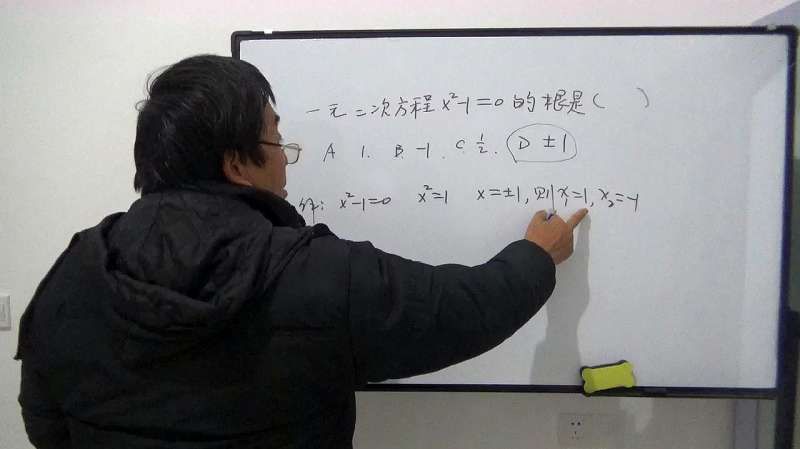 一元二次方程 x²-1=0 的根是( )
A 1. B. -1. C. ½. D ±1
解: x²-1=0 x²=1 x=±1, 则 x₁=1, x₂=-1